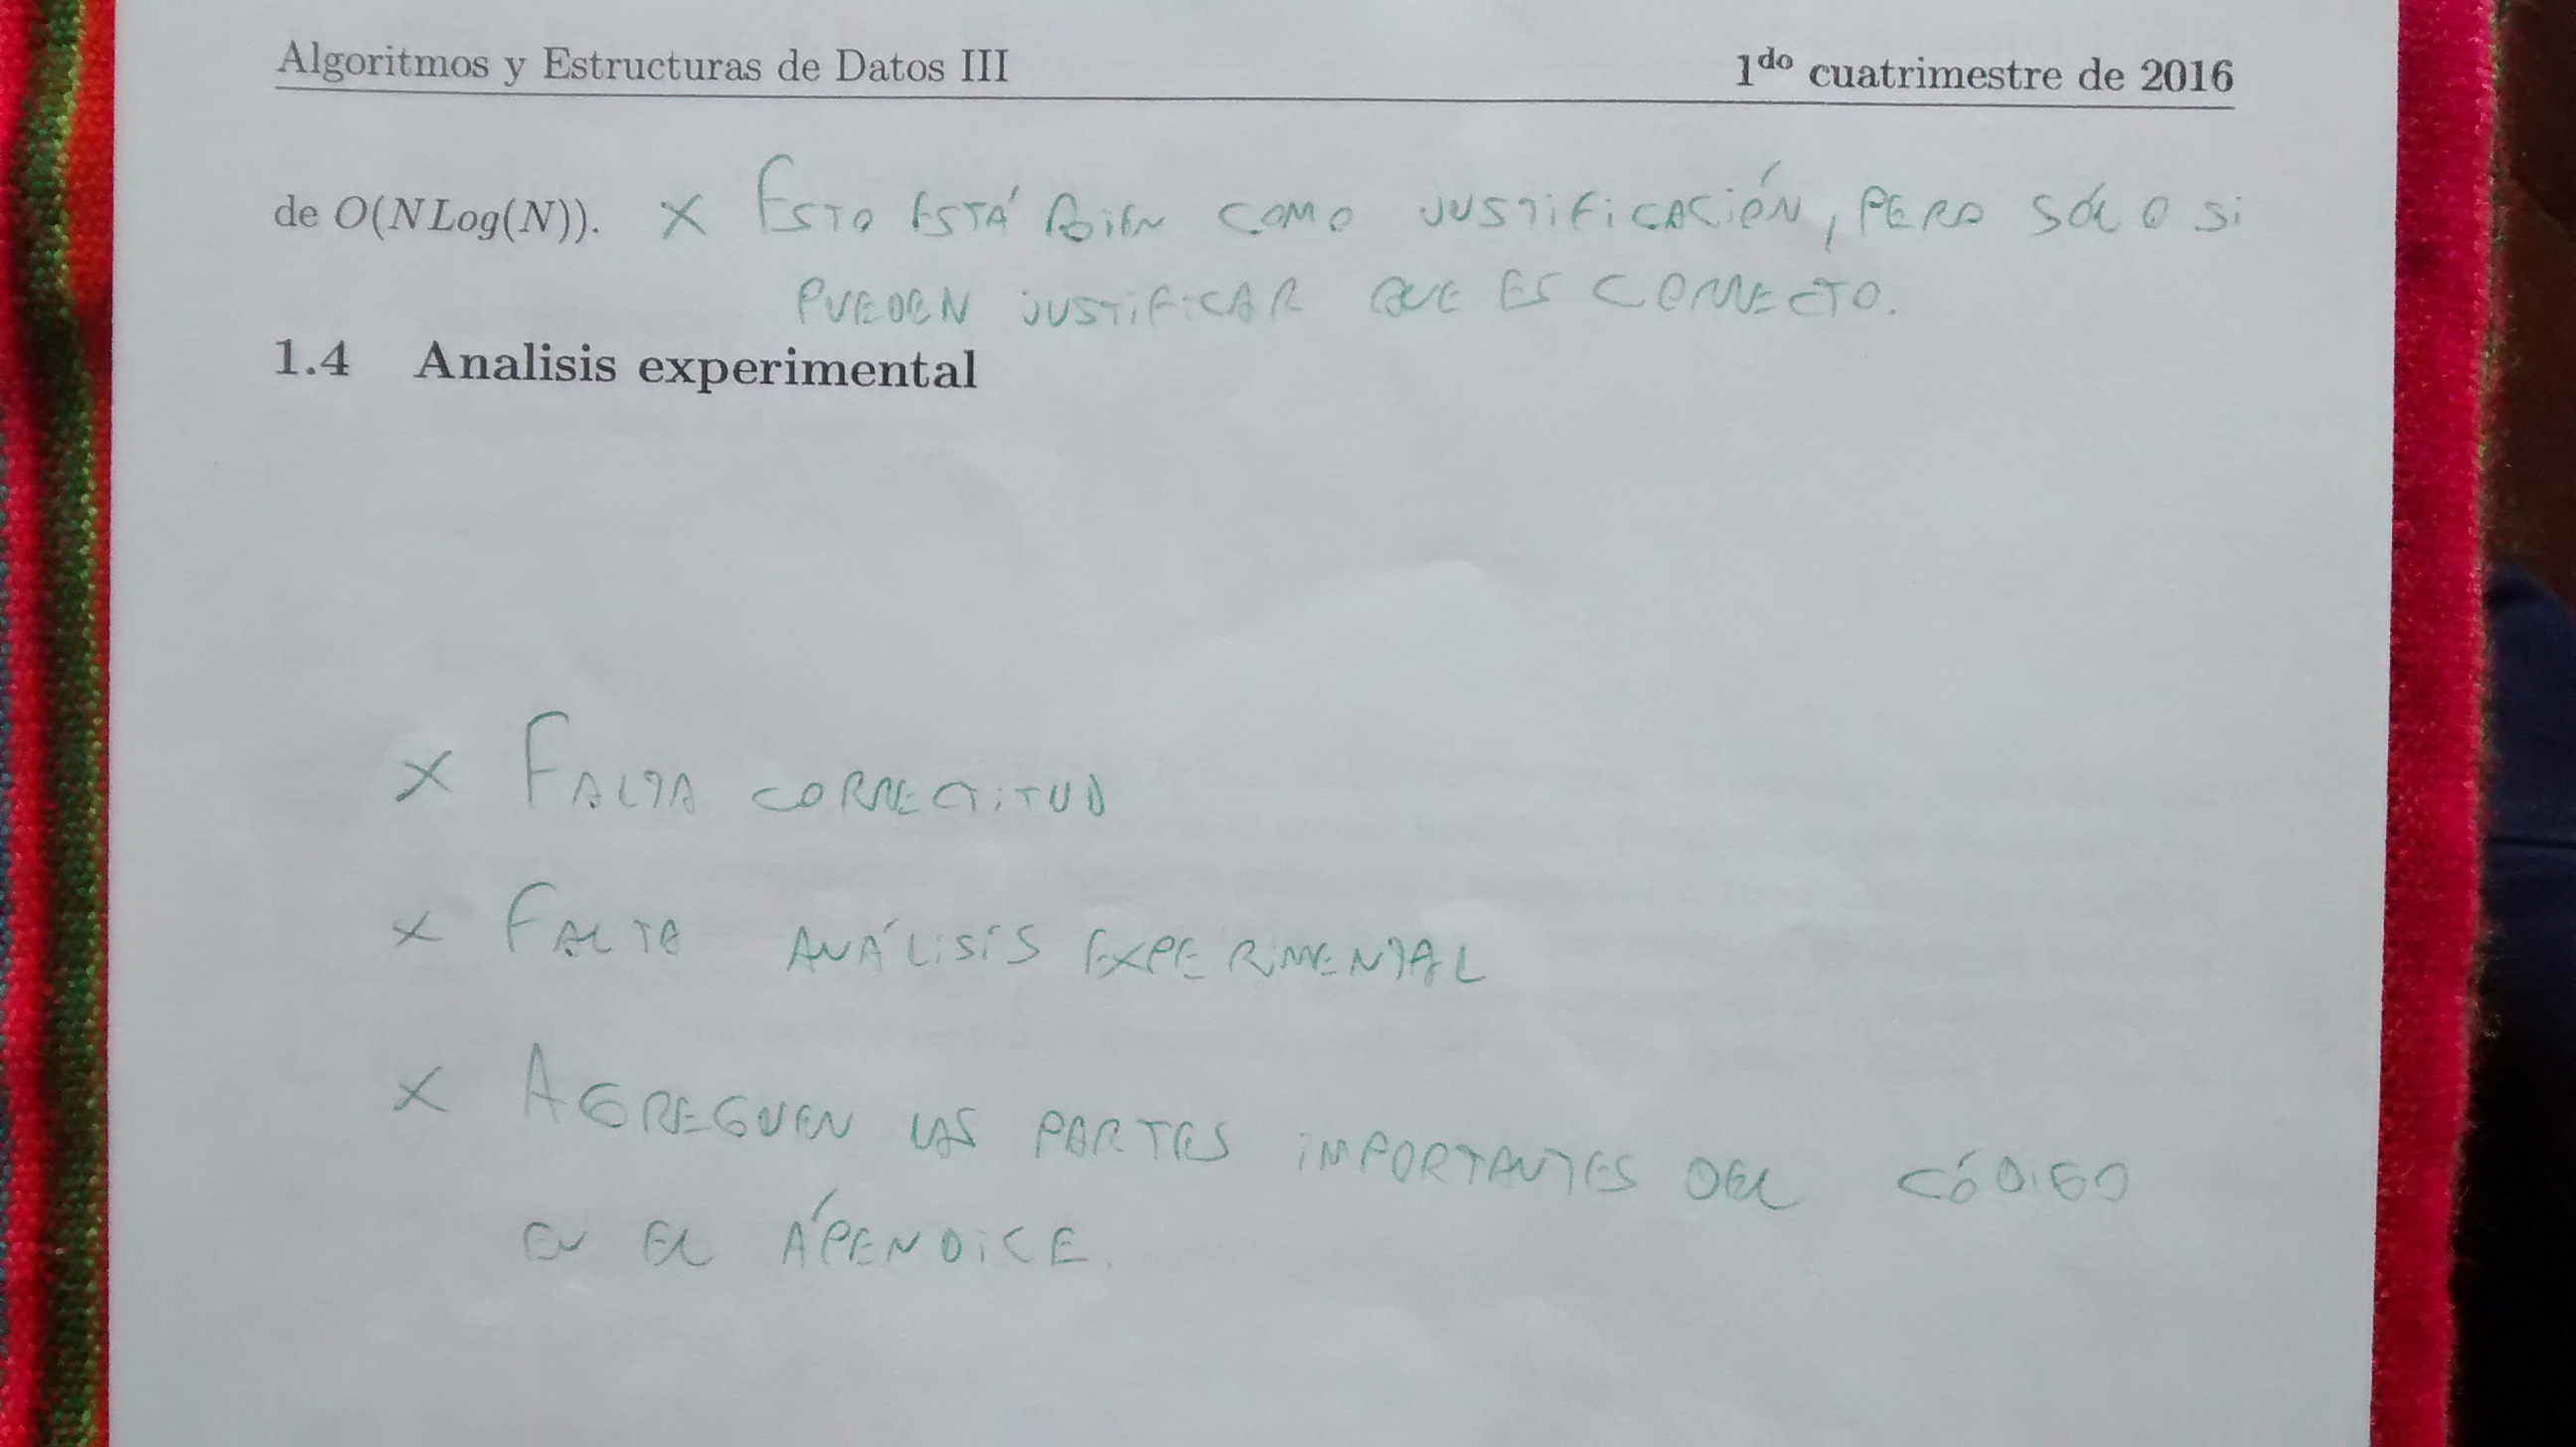 Algoritmos y Estructuras de Datos III 1do cuatrimestre de 2016
de O(NLog(N)). x ESTO ESTÁ BIEN COMO JUSTIFICACIÓN, PERO SÓLO SI
PUEDEN JUSTIFICAR QUE ES CORRECTO.
1.4 Analisis experimental
x FALTA CORRECTITUD
x FALTA ANÁLISIS EXPERIMENTAL
x AGREGUEN LAS PARTES IMPORTANTES DEL CÓDIGO
EN EL ÁPENDICE.